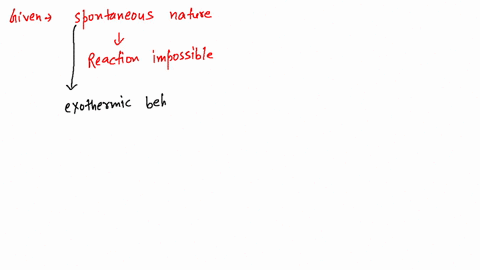 Given → spontaneous nature
↓
Reaction impossible
exothermic beh